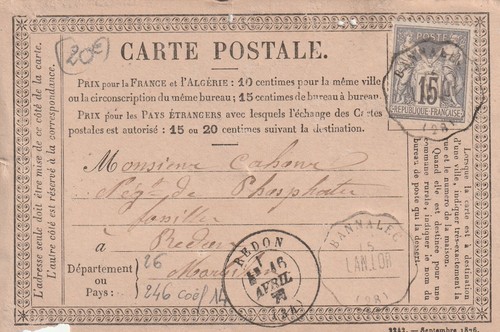 20€
CARTE POSTALE.
PRIX pour la FRANCE et l'ALGÉRIE: 10 centimes pour la même ville
ou la circonscription du même bureau; 15 centimes de bureau à bureau.
PRIX pour les PAYS ÉTRANGERS avec lesquels l'échange des Cartes
postales est autorisé : 15 ou 20 centimes suivant la destination.
POSTE
15
RÉPUBLIQUE FRANÇAISE
BANNALEC
(28)
Monsieur Cahour
Négt de Phosphate
fossile
à Redon
Département
ou
Pays :
26
246 coef 14
REDON
16
AVRIL
(34)
BANNALEC
5
LANDOR
(28)
L'adresse seule doit être mise de ce côté de la carte.
L'autre côté est réservé à la correspondance.
Lorsque la carte est à destination
d'une ville, indiquer très-exactement la
rue et le numéro de la maison.
Quand elle est destinée pour une
commune rurale, indiquer le nom du
bureau de poste qui la dessert.
Septembre 1876.